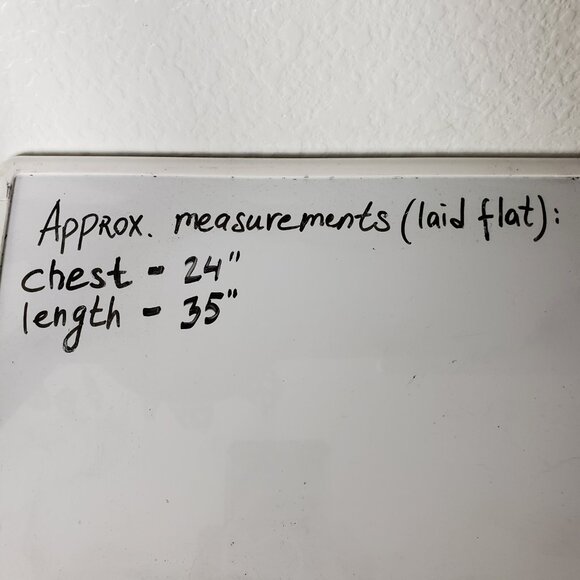 Approx. measurements (laid flat):
chest - 24"
length - 35"